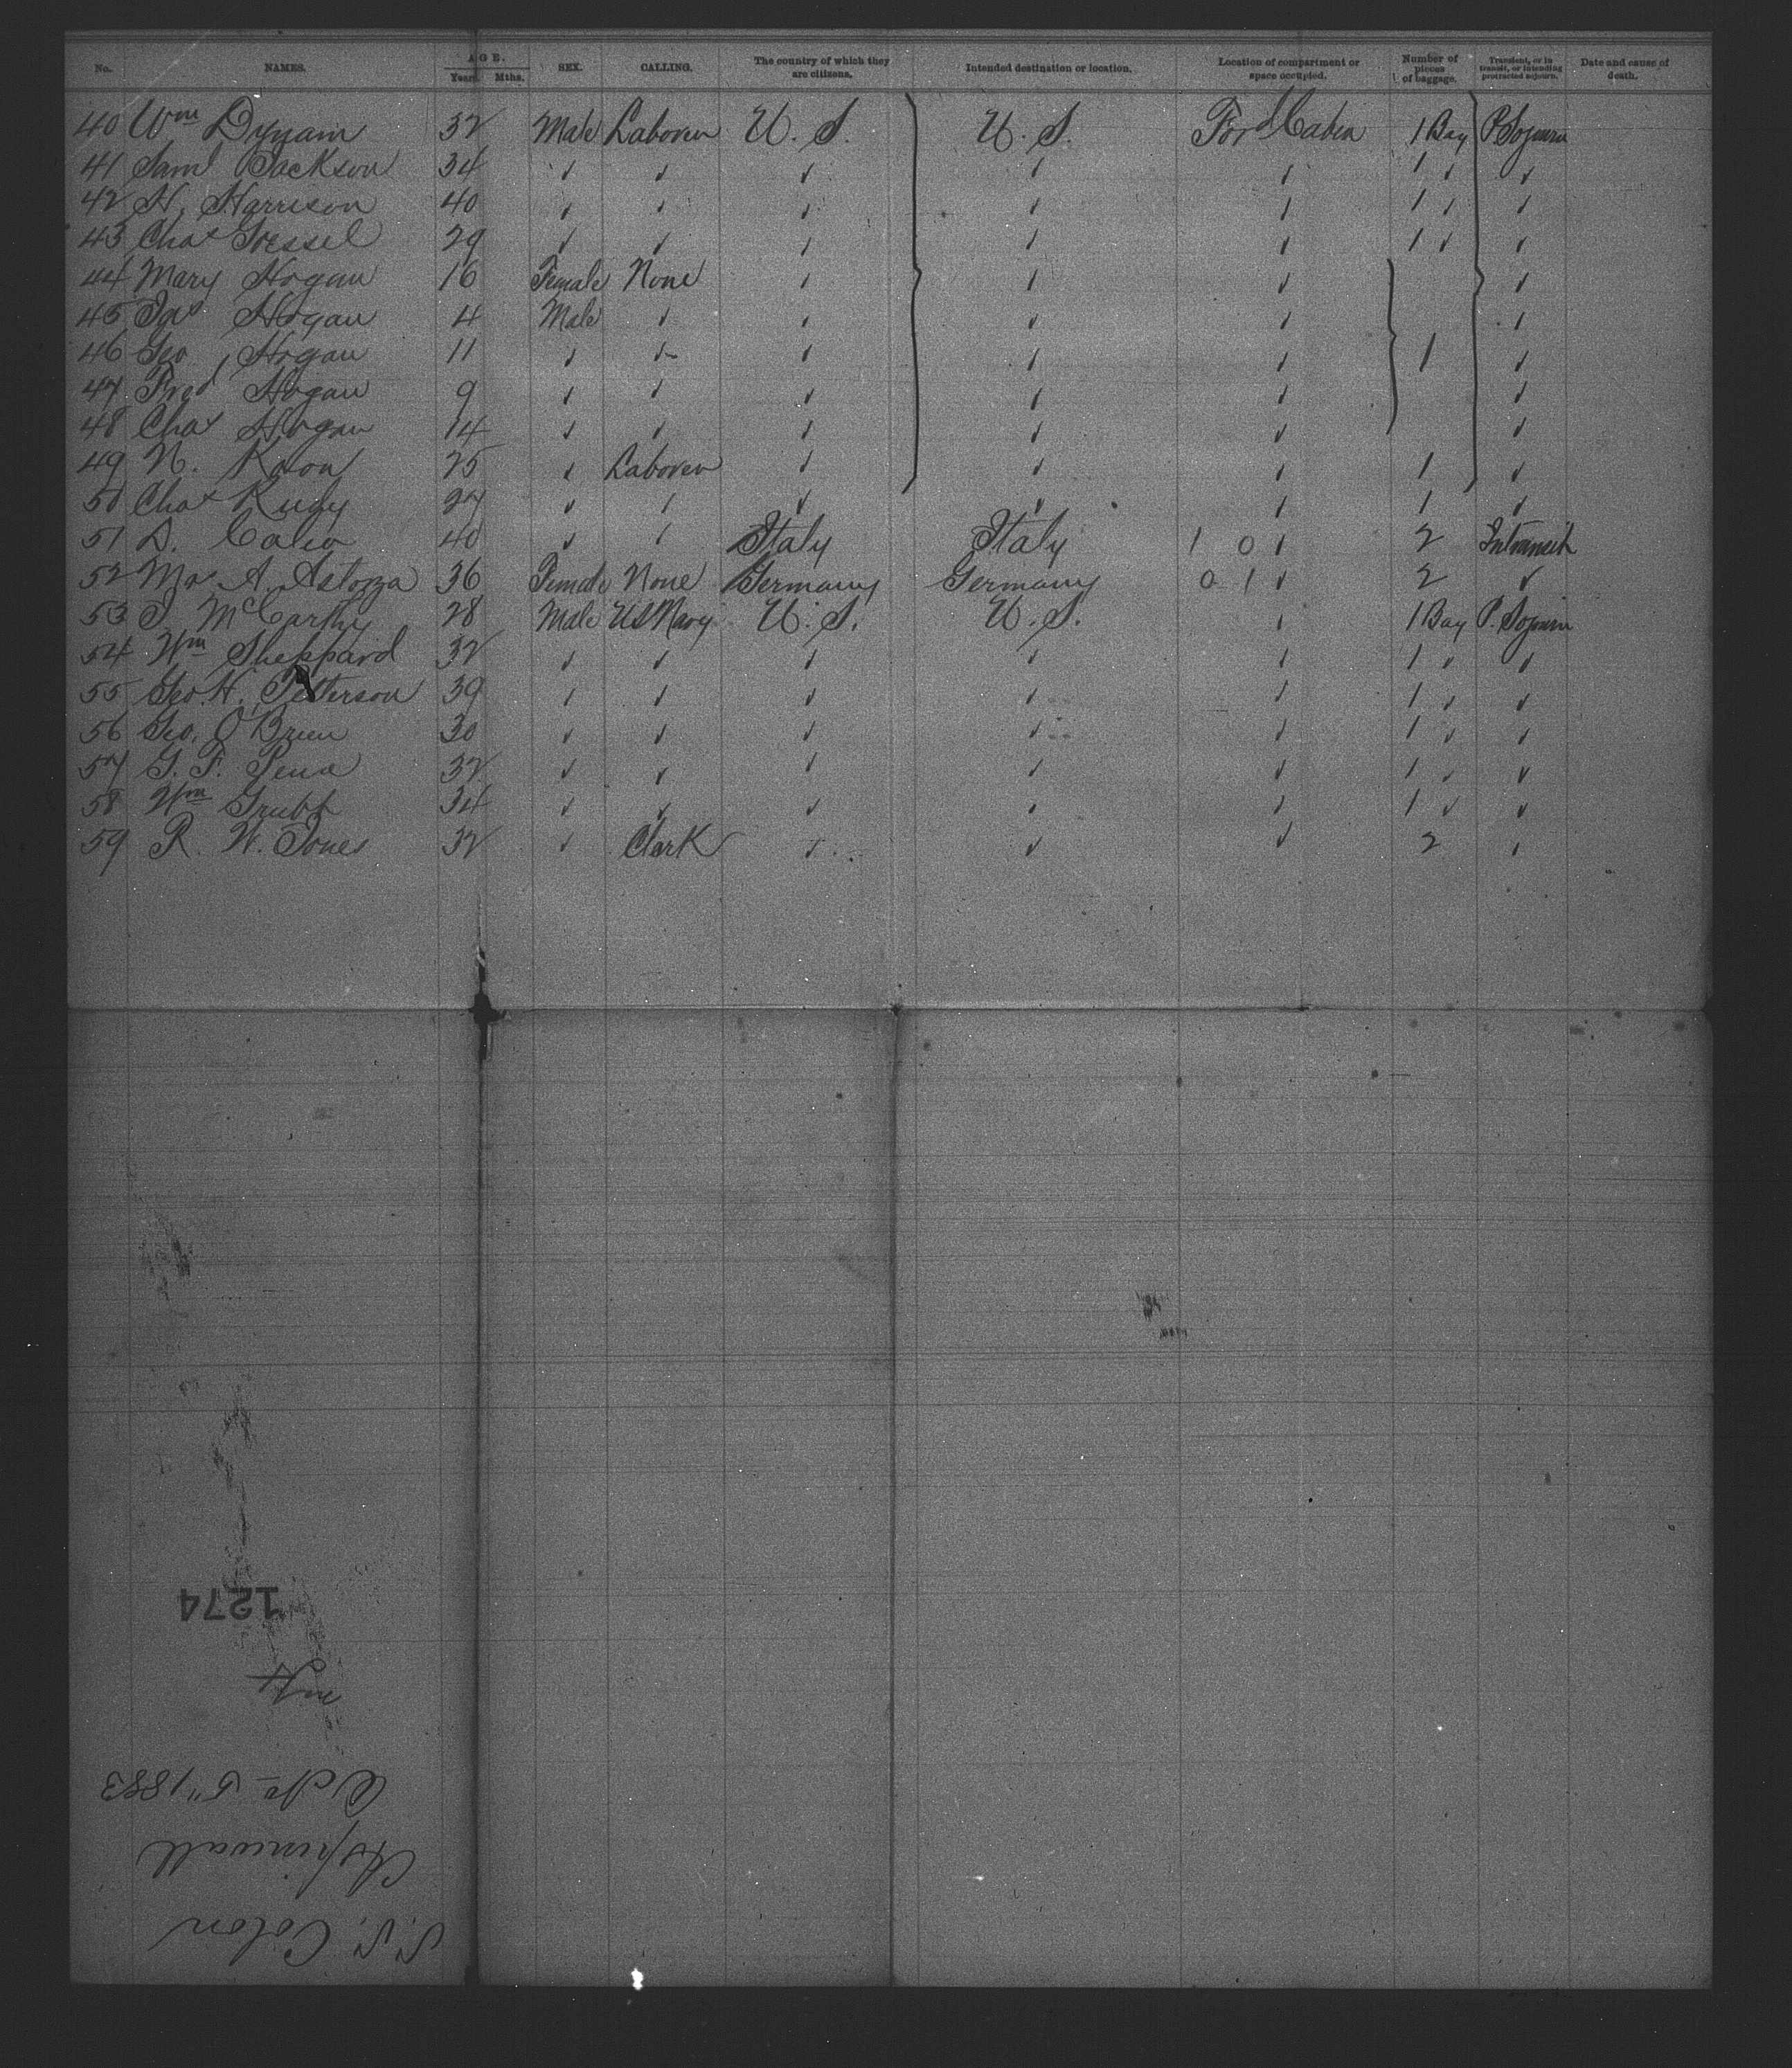 No. NAMES. AGE. Years. Mths. SEX. CALLING. The country of which they are citizens. Intended destination or location. Location of compartment or space occupied. Number of pieces of baggage. Transient, or in transit, or intending protracted sojourn. Date and cause of death.
40 Wm Dynam 32 Male Laborer U. S. U. S. Ford Cabin 1 Bag P. Sojourn
41 Saml Jackson 34 ✓ ✓ ✓ ✓ ✓ 1 ✓ ✓
42 H. Harrison 40 ✓ ✓ ✓ ✓ ✓ 1 ✓ ✓
43 Chas 29 ✓ ✓ ✓ ✓ ✓ 1 ✓ ✓
44 Mary Hogan 16 Female None ✓ ✓ ✓ ✓
45 Jas Hogan 4 Male ✓ ✓ ✓ ✓ ✓
46 Geo Hogan 11 ✓ ✓ ✓ ✓ ✓ 1 ✓
47 Fred Hogan 9 ✓ ✓ ✓ ✓ ✓ ✓
48 Chas Hogan 14 ✓ ✓ ✓ ✓ ✓ ✓
49 N. 25 ✓ Laborer ✓ ✓ ✓ 1 ✓
50 Chas Rudy 27 ✓ ✓ ✓ ✓ ✓ 1 ✓
51 D. 40 ✓ ✓ Italy Italy 1 0 ✓ 2 Intransit
52 A. Astozza 36 Female None Germany Germany 0 1 ✓ 2 ✓
53 McCarthy 28 Male US Navy U. S. U. S. ✓ 1 Bag P. Sojourn
54 Wm Sheppard 32 ✓ ✓ ✓ ✓ ✓ 1 ✓ ✓
55 Geo. H. Petterson 39 ✓ ✓ ✓ ✓ ✓ 1 ✓ ✓
56 Geo. O'Brien 30 ✓ ✓ ✓ ✓ ✓ 1 ✓ ✓
57 G. F. Pena 32 ✓ ✓ ✓ ✓ ✓ 1 ✓ ✓
58 Wm Grubb 34 ✓ ✓ ✓ ✓ ✓ 1 ✓ ✓
59 R. W. Jones 32 ✓ Clerk ✓ ✓ ✓ 2 ✓
S.S. Colon
Aspinwall
5" 1883
1274